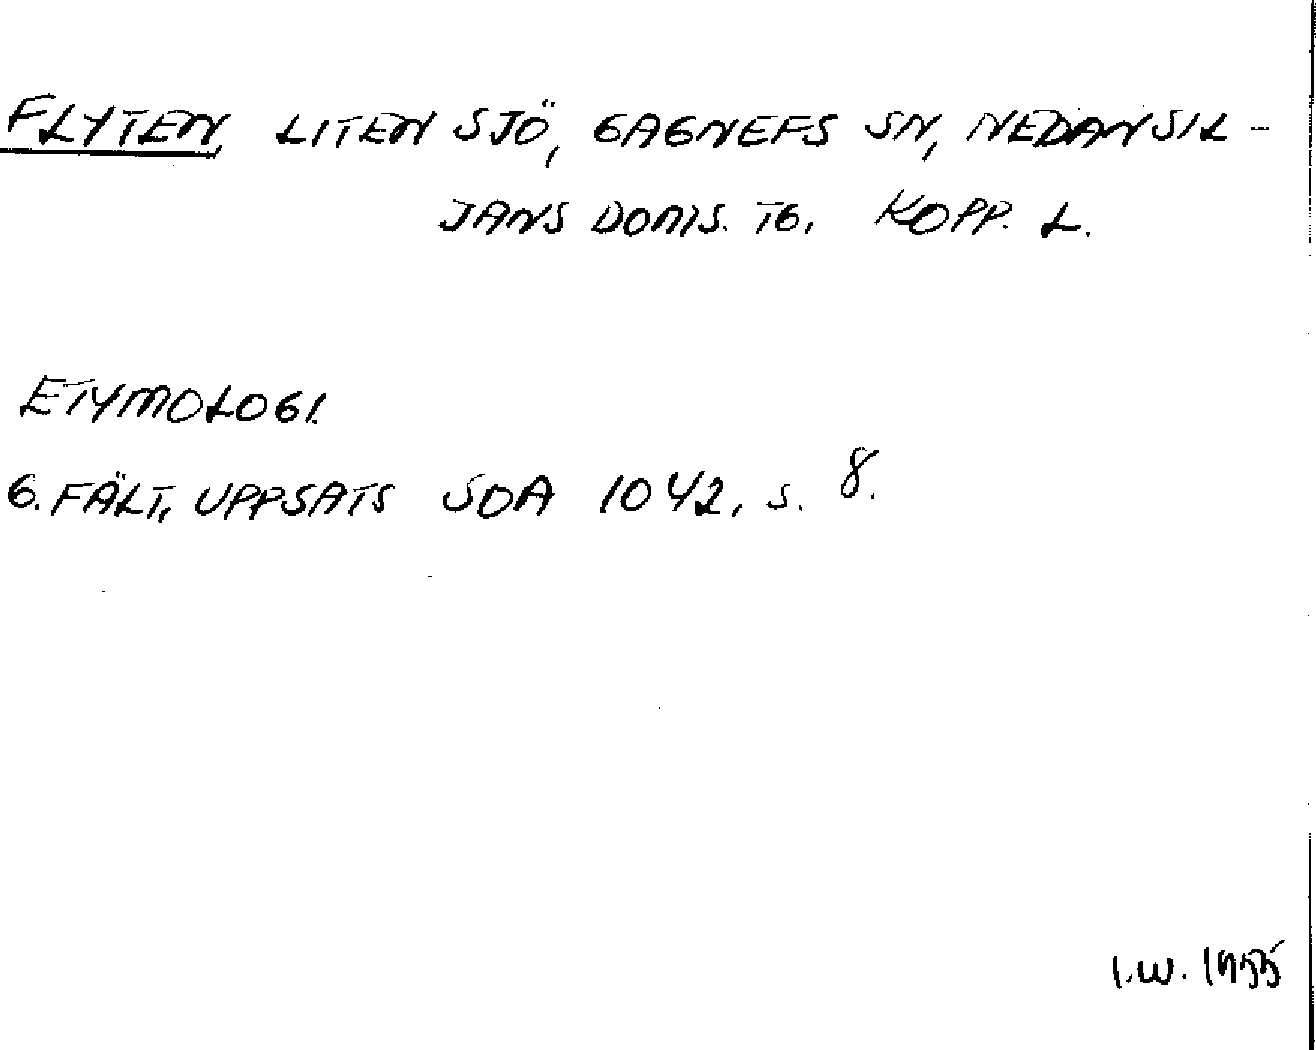 FLYTEN, LITEN SJÖ, GAGNEFS SN, NEDANSIL-
JANS DOMS. TG. KOPP. L.
ETYMOLOGI.
G. FÄLT, UPPSATS SOA 1042, s. 8.
I.W. 1955